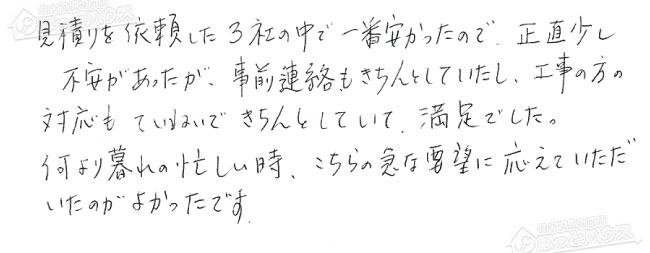 見積りを依頼した3社の中で一番安かったので、正直少し
不安があったが、事前連絡もきちんとしていたし、工事の方の
対応もていねいできちんとしていて、満足でした。
何より暮れの忙しい時、こちらの急な要望に応えていただ
いたのがよかったです。